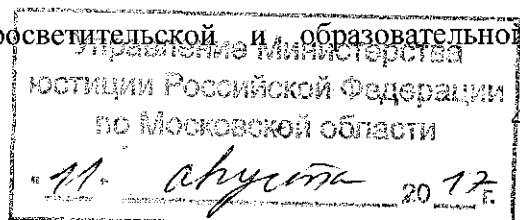 росветительской и образовательной
Управление Министерства
юстиции Российской Федерации
по Московской области
" 11 " августа 20 17 г.